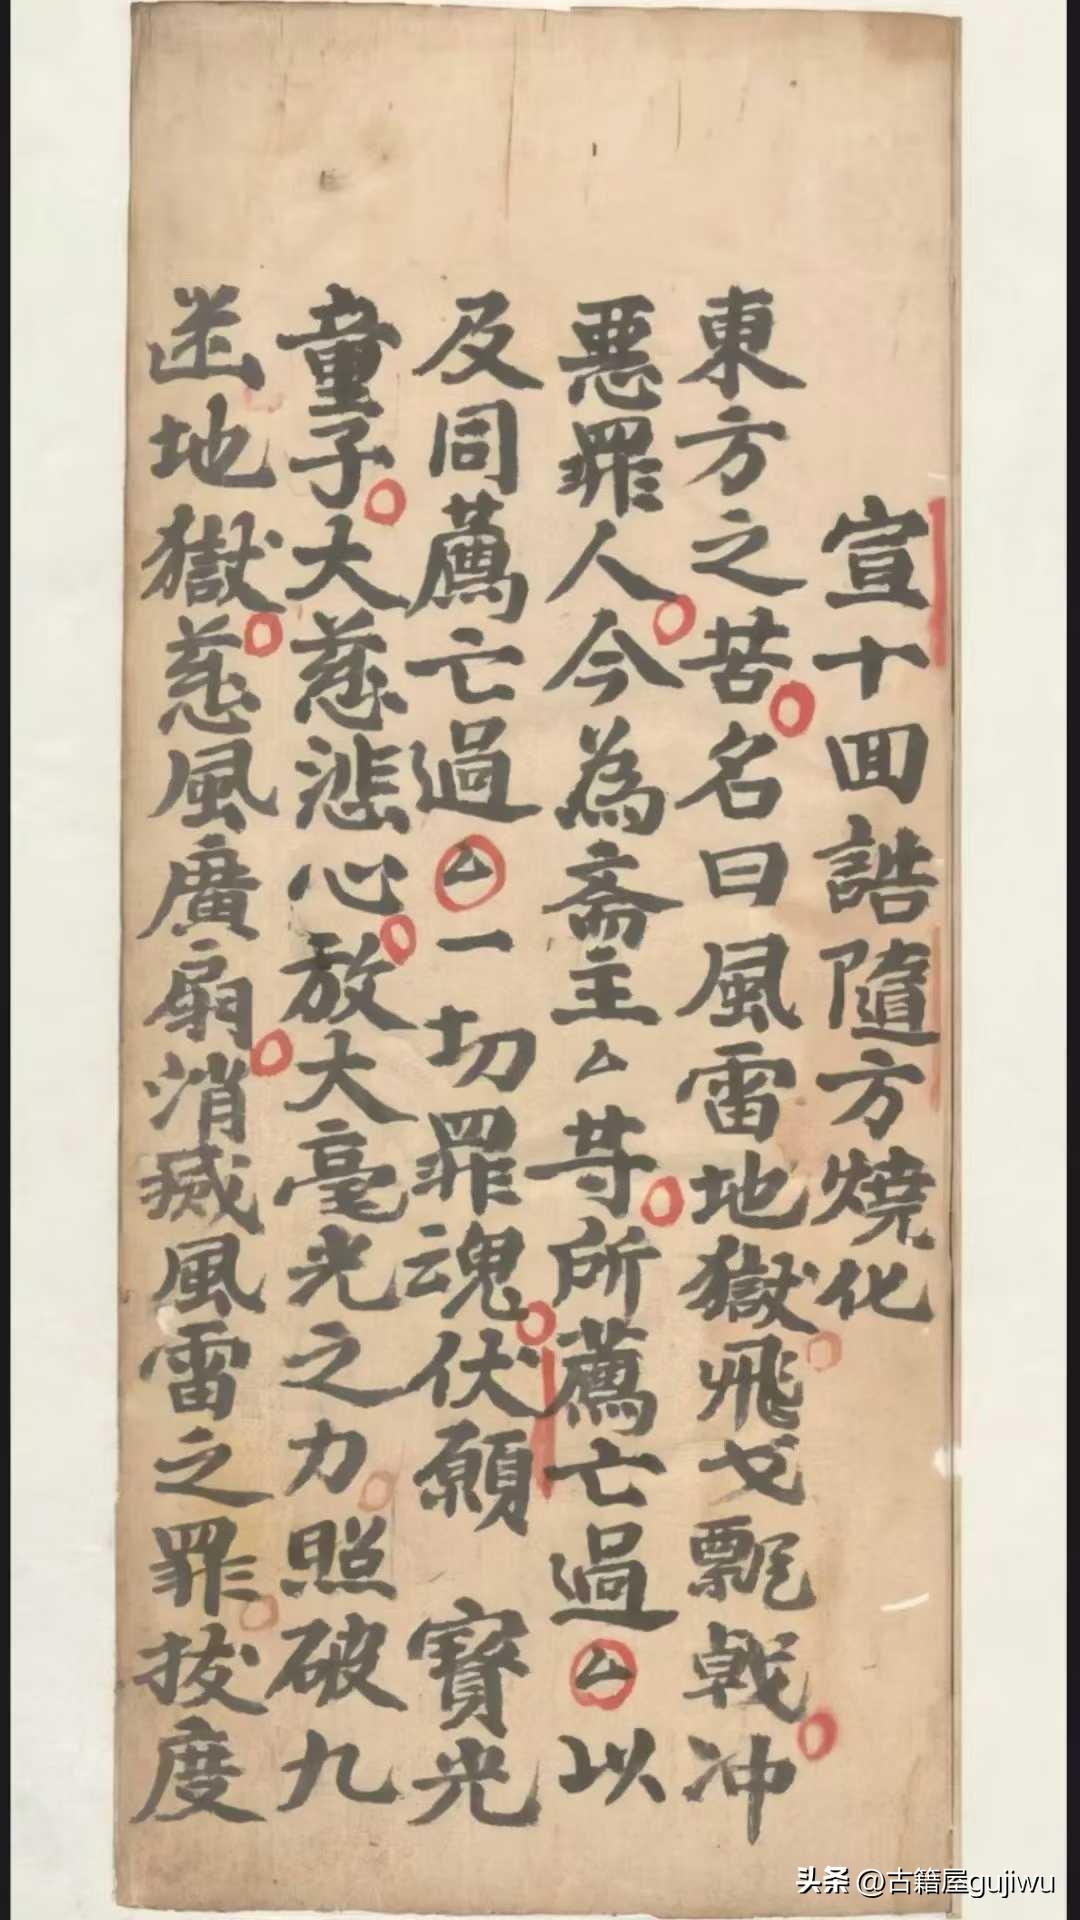 宣十回誥隨方燒化
東方之苦名曰風雷地獄飛戈飄戟冲
惡罪人今為斋主厶等所薦亡過厶以
及同薦亡過厶一切罪魂伏願 寳光
童子大慈悲心放大毫光之力照破九
幽地獄慈風廣扇消滅風雷之罪拔度
头条 @古籍屋gujiwu